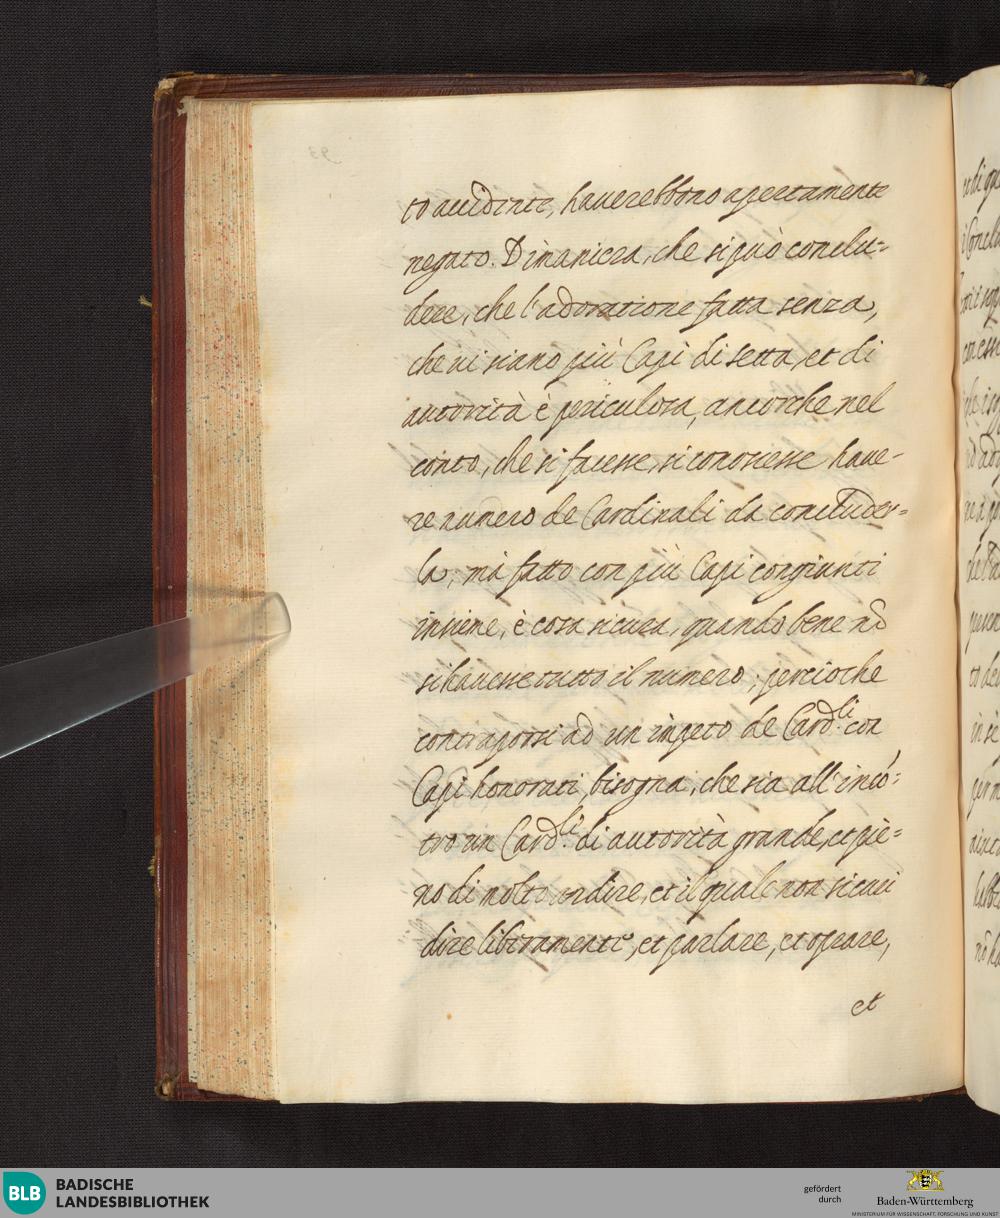 to accidente, hauerebbono apertamente
negato. Di maniera, che si può conclu=
dere, che l'adoratione fatta senza,
che ui siano più Capi di setta, et di
autorità è periculosa, ancorche nel
conto, che si facesse, si conoscesse haue-
re numero de Cardinali da concluder=
la; mà fatto con più Capi congiunti
insieme, è cosa sicura, quando bene nõ
si hauesse tutto il numero; percioche
contraporsi ad un impeto de Card.li con
Capi honorati, bisogna, che sia all'incõ=
tro un Card.le di autorità grande, et pie=
no di molto ardire, et il quale non si curi
dire liberamente, et parlare, et oprare,
et
BLB BADISCHE
LANDESBIBLIOTHEK
gefördert
durch
Baden-Württemberg
MINISTERIUM FÜR WISSENSCHAFT, FORSCHUNG UND KUNST